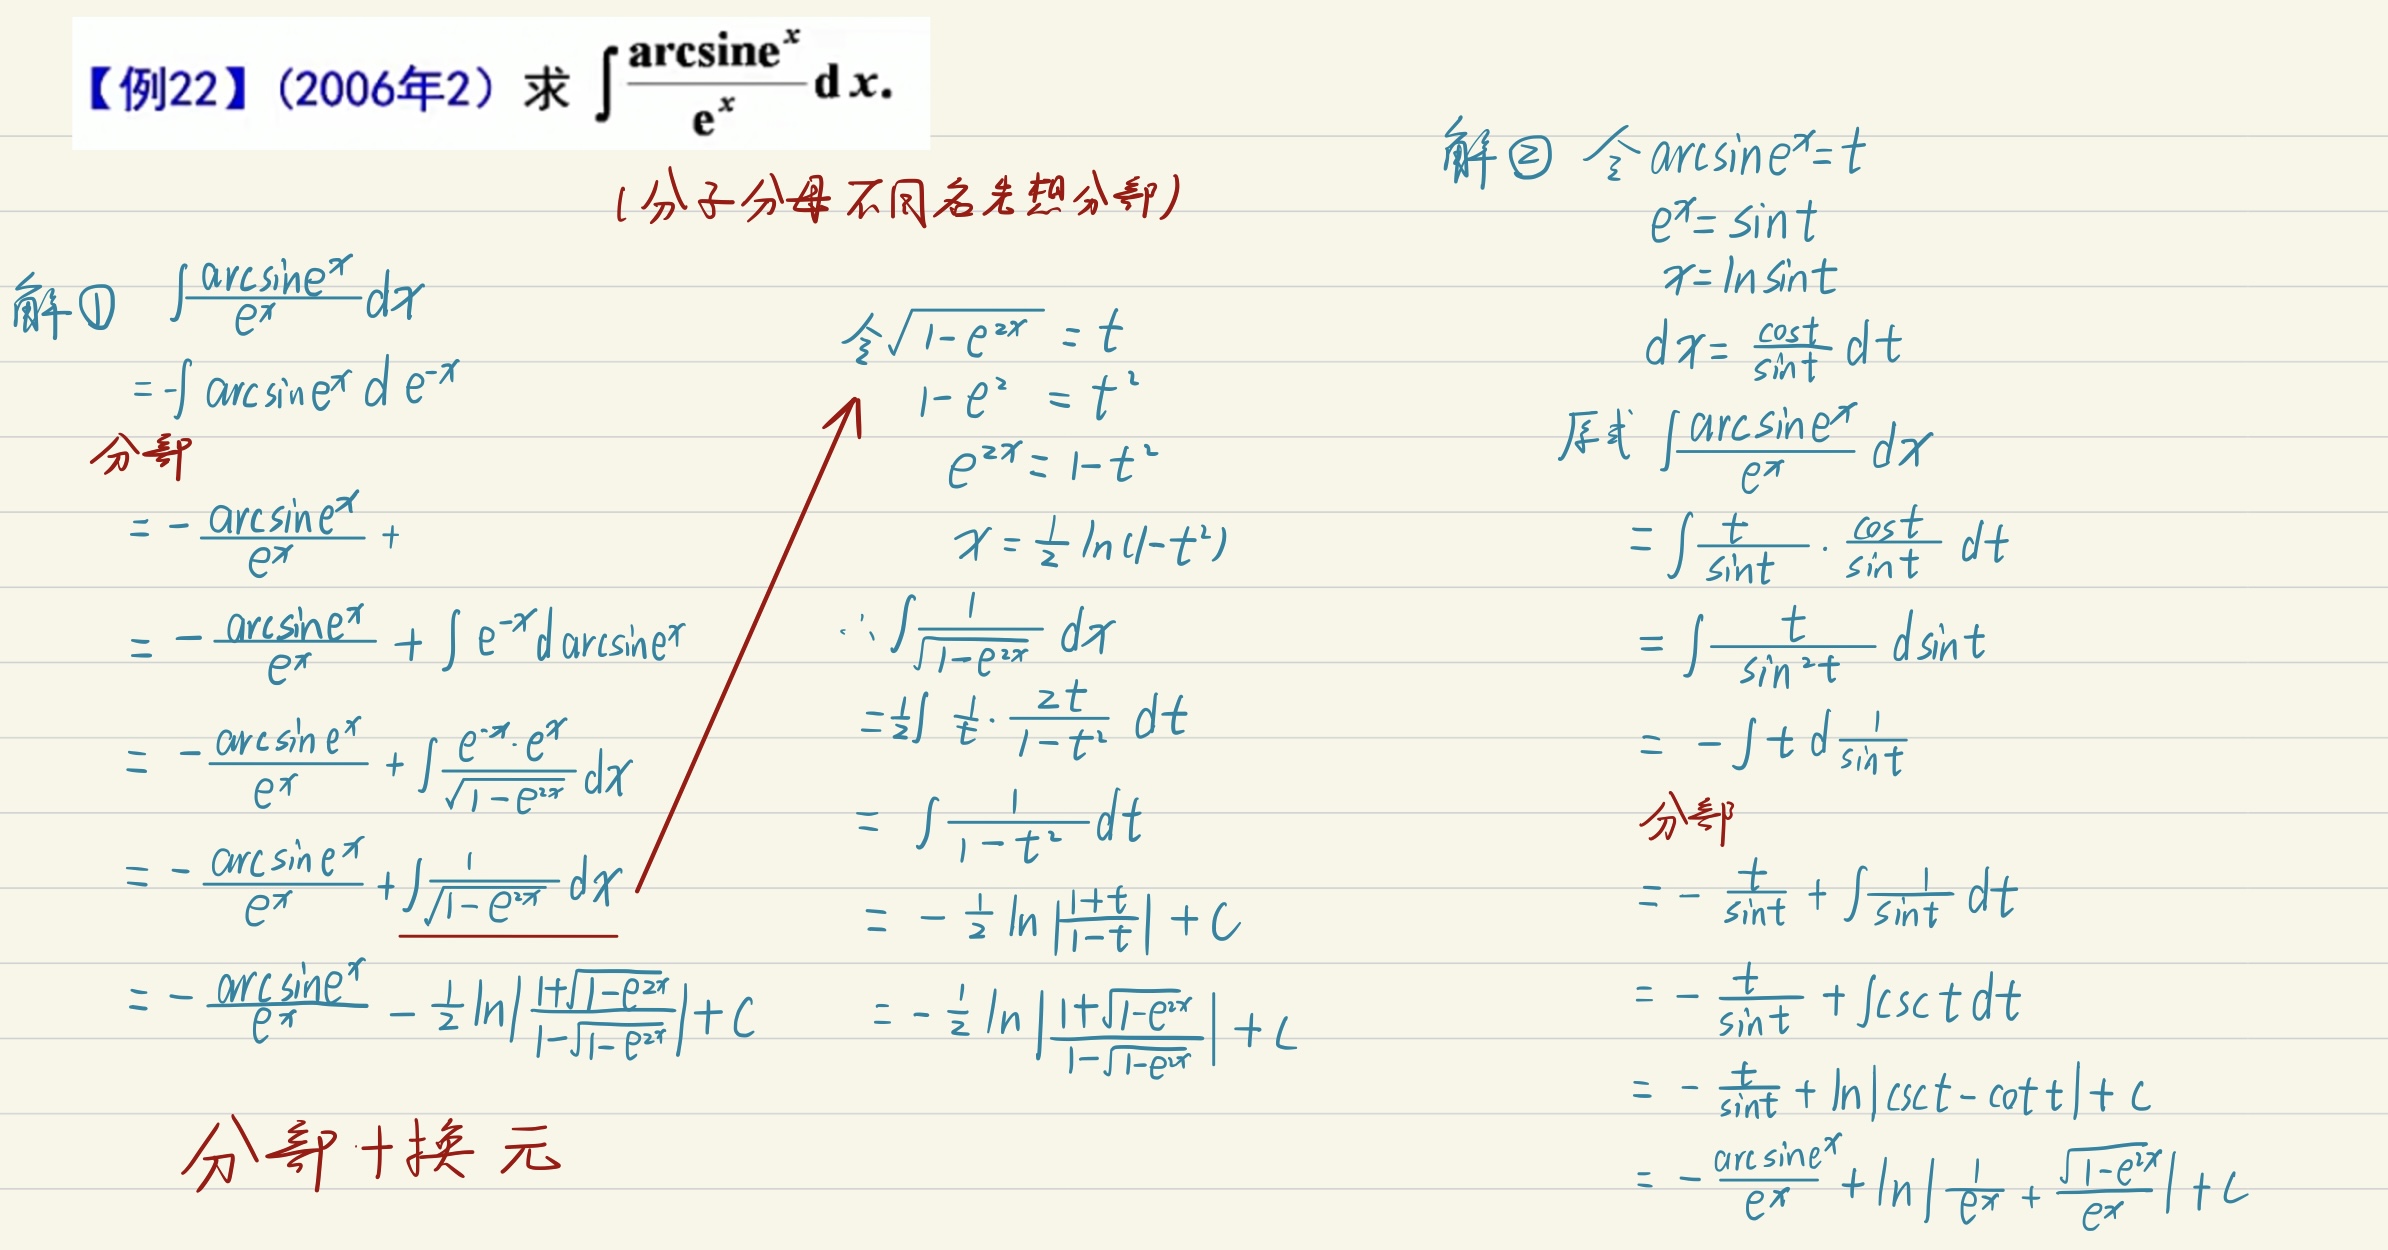 【例22】(2006年2) 求 ∫ arcsine^x / e^x dx.
(分子分母不同名先想分部)
解① ∫ arcsine^x / e^x dx
= -∫ arcsine^x d e^{-x}
分部
= - arcsine^x / e^x +
= - arcsine^x / e^x + ∫ e^{-x} d arcsine^x
= - arcsine^x / e^x + ∫ e^{-x}·e^x / √(1-e^{2x}) dx
= - arcsine^x / e^x + ∫ 1 / √(1-e^{2x}) dx
= - arcsine^x / e^x - 1/2 ln| (1+√(1-e^{2x})) / (1-√(1-e^{2x})) | + C
分部+换元
令 √(1-e^{2x}) = t
1-e^2 = t^2
e^{2x} = 1-t^2
x = 1/2 ln(1-t^2)
∴ ∫ 1 / √(1-e^{2x}) dx
= 1/2 ∫ 1/t · 2t / (1-t^2) dt
= ∫ 1 / (1-t^2) dt
= - 1/2 ln| (1+t) / (1-t) | + C
= - 1/2 ln| (1+√(1-e^{2x})) / (1-√(1-e^{2x})) | + C
解② 令 arcsine^x = t
e^x = sint
x = lnsint
dx = cost / sint dt
原式 ∫ arcsine^x / e^x dx
= ∫ t / sint · cost / sint dt
= ∫ t / sin^2 t dsint
= - ∫ t d 1/sint
分部
= - t / sint + ∫ 1 / sint dt
= - t / sint + ∫ csc t dt
= - t / sint + ln|csct - cott| + C
= - arcsine^x / e^x + ln| 1/e^x + √(1-e^{2x}) / e^x | + C